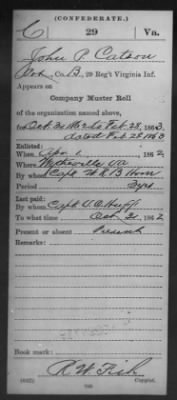 (CONFEDERATE.)
C 29 Va.
John P. Catron
Pvt., Co. B, 29 Reg't Virginia Inf.
Appears on
Company Muster Roll
of the organization named above,
for Oct 31 1862 to Feb 28, 1863
dated Feb 28 1863
Enlisted:
When Apr 1, 1862
Where Wytheville Va
By whom Capt. W. R. B. Horn
Period 3 yrs
Last paid:
By whom Capt V. O. Huff
To what time Oct 31, 1862
Present or absent Present
Remarks:
Book mark:
R. W. Fish
(642) Copyist.